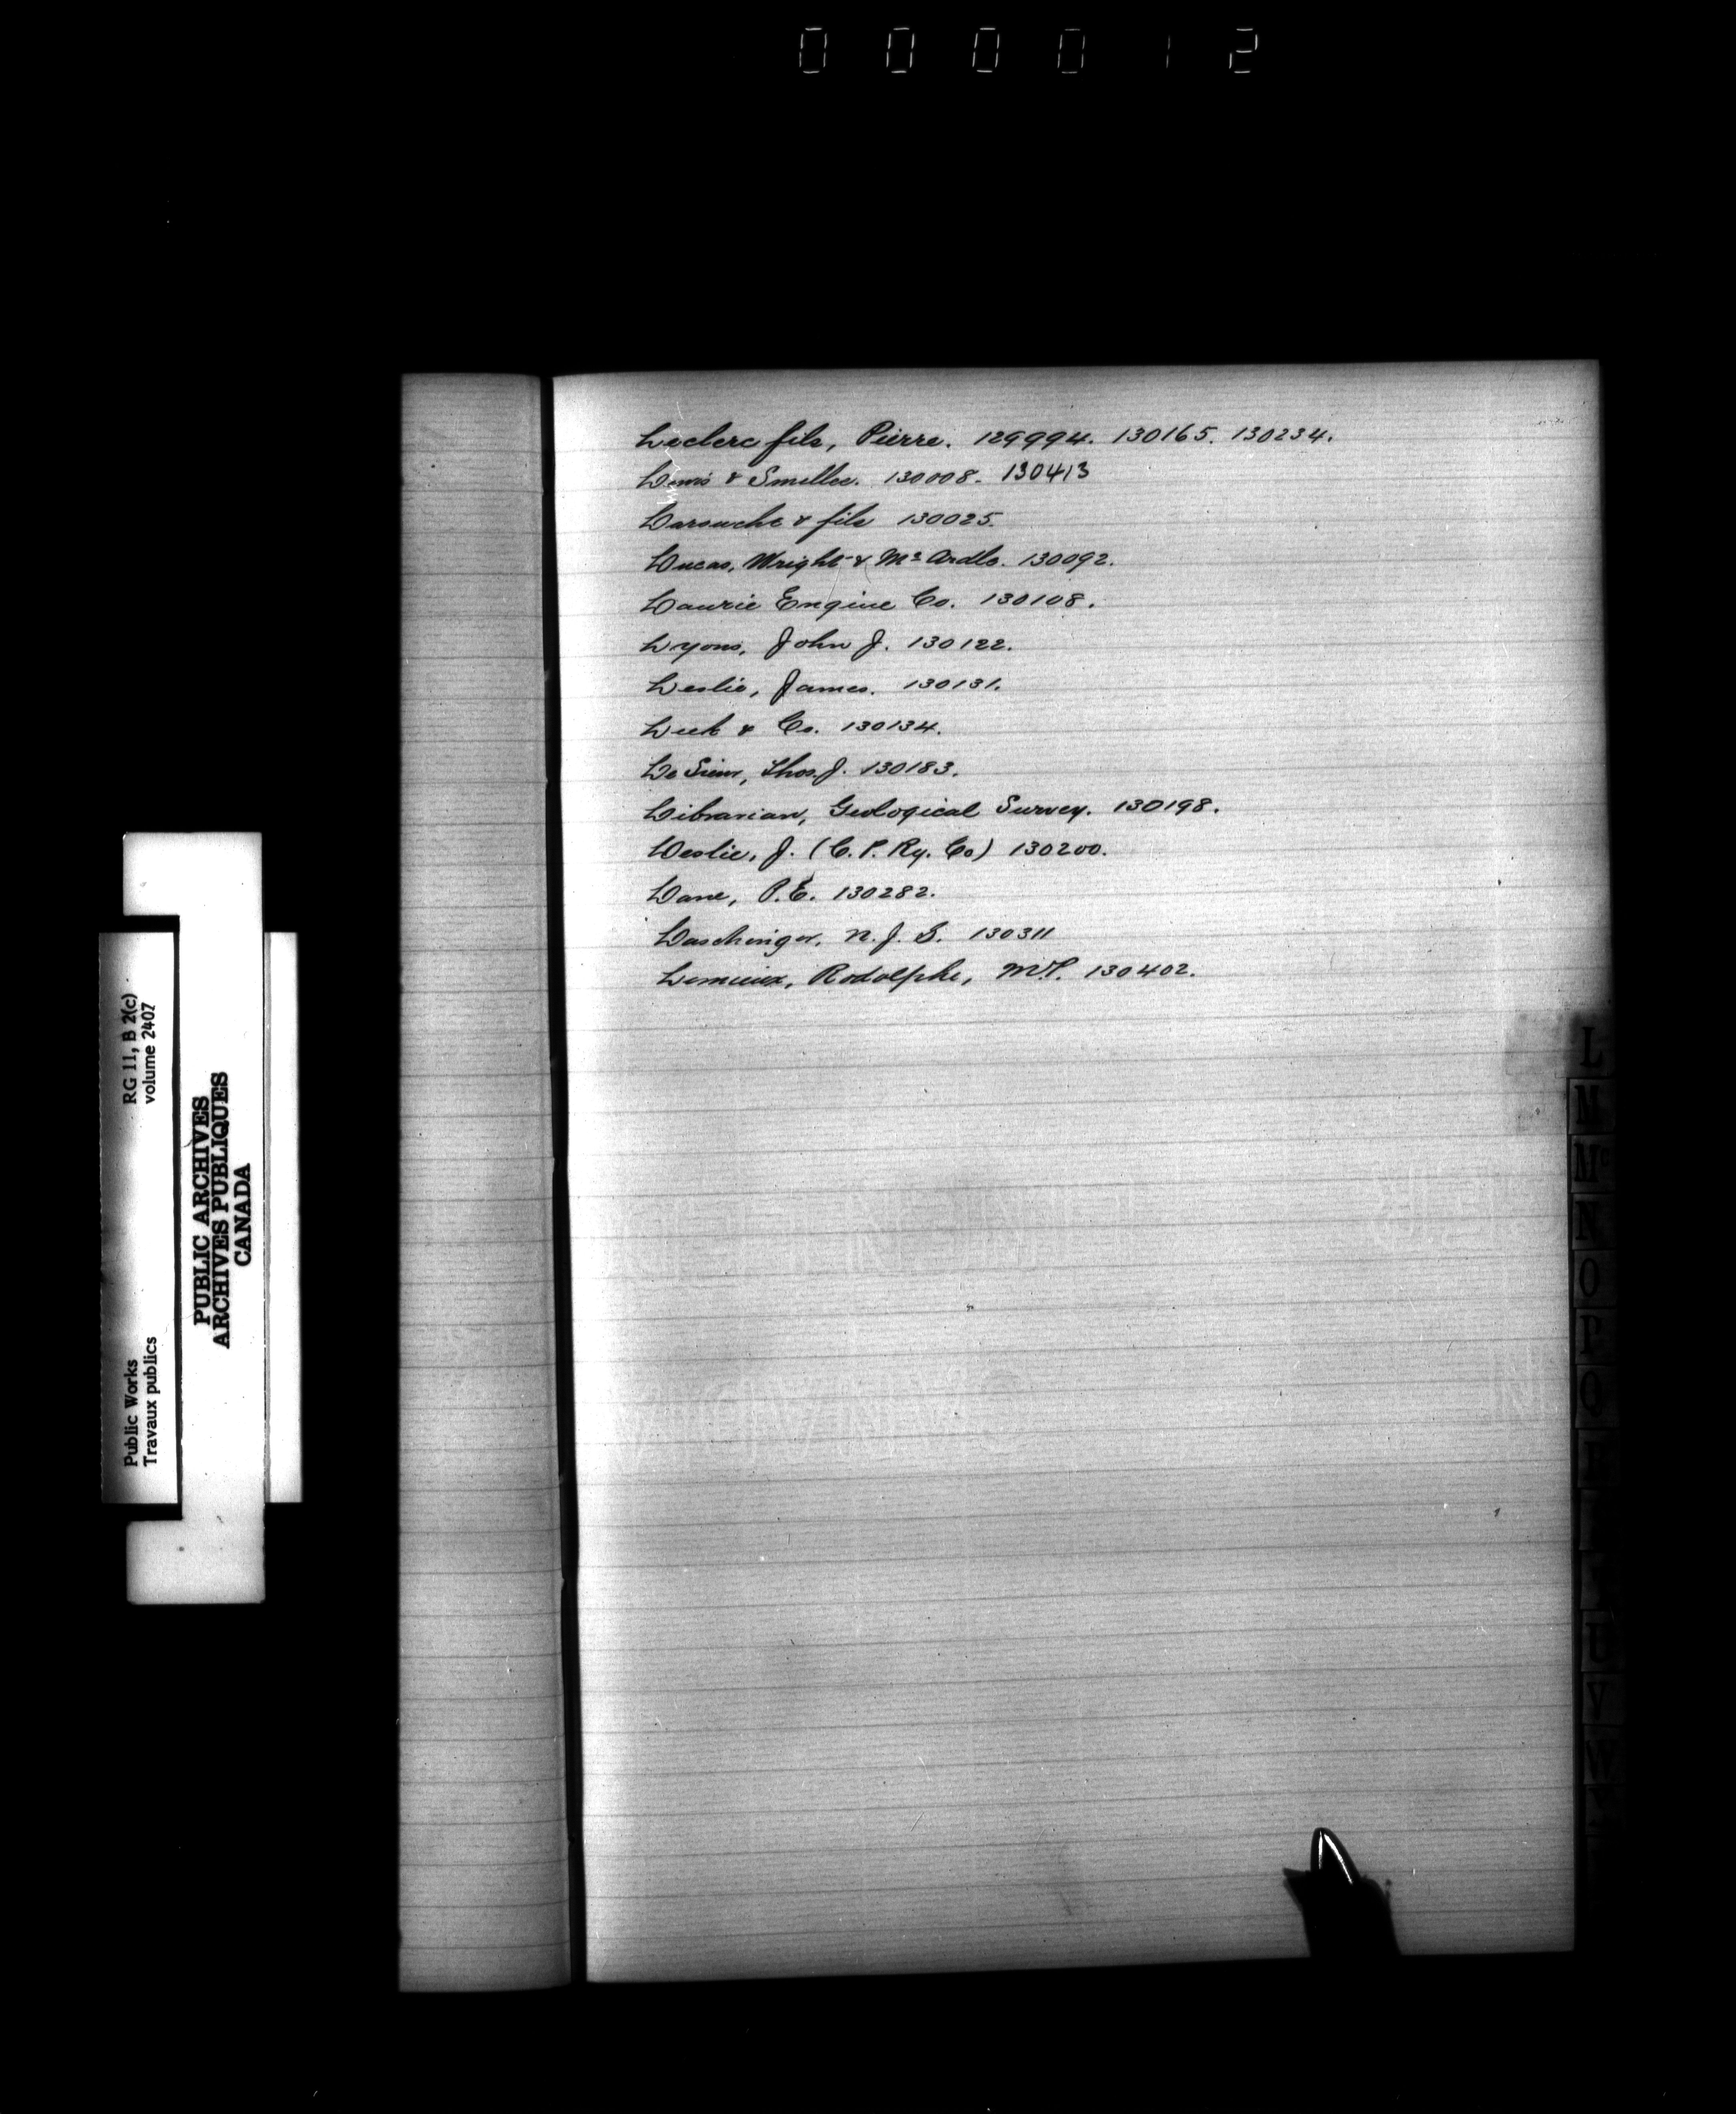 000012
Leclerc fils, Pierre. 129994. 130165. 130234.
Lewis & Smellie. 130008. 130413
Larouche & fils 130025.
Lucas, Wright & Mc Ardle. 130092.
Laurie Engine Co. 130108.
Lyons, John J. 130122.
Leslie, James. 130131.
& Co. 130134.
Le Sueur, Thos. J. 130183.
Librarian, Geological Survey. 130198.
Leslie, J. (C. P. Ry. Co) 130200.
Lane, P.E. 130282.
Laschinger, N. J. S. 130311
Lemieux, Rodolphe, M.P. 130402.
L
M
Mc
N
O
P
Q
R
U
V
W
RG 11, B 2(c)
volume 2407
Public Works
Travaux publics
PUBLIC ARCHIVES
ARCHIVES PUBLIQUES
CANADA